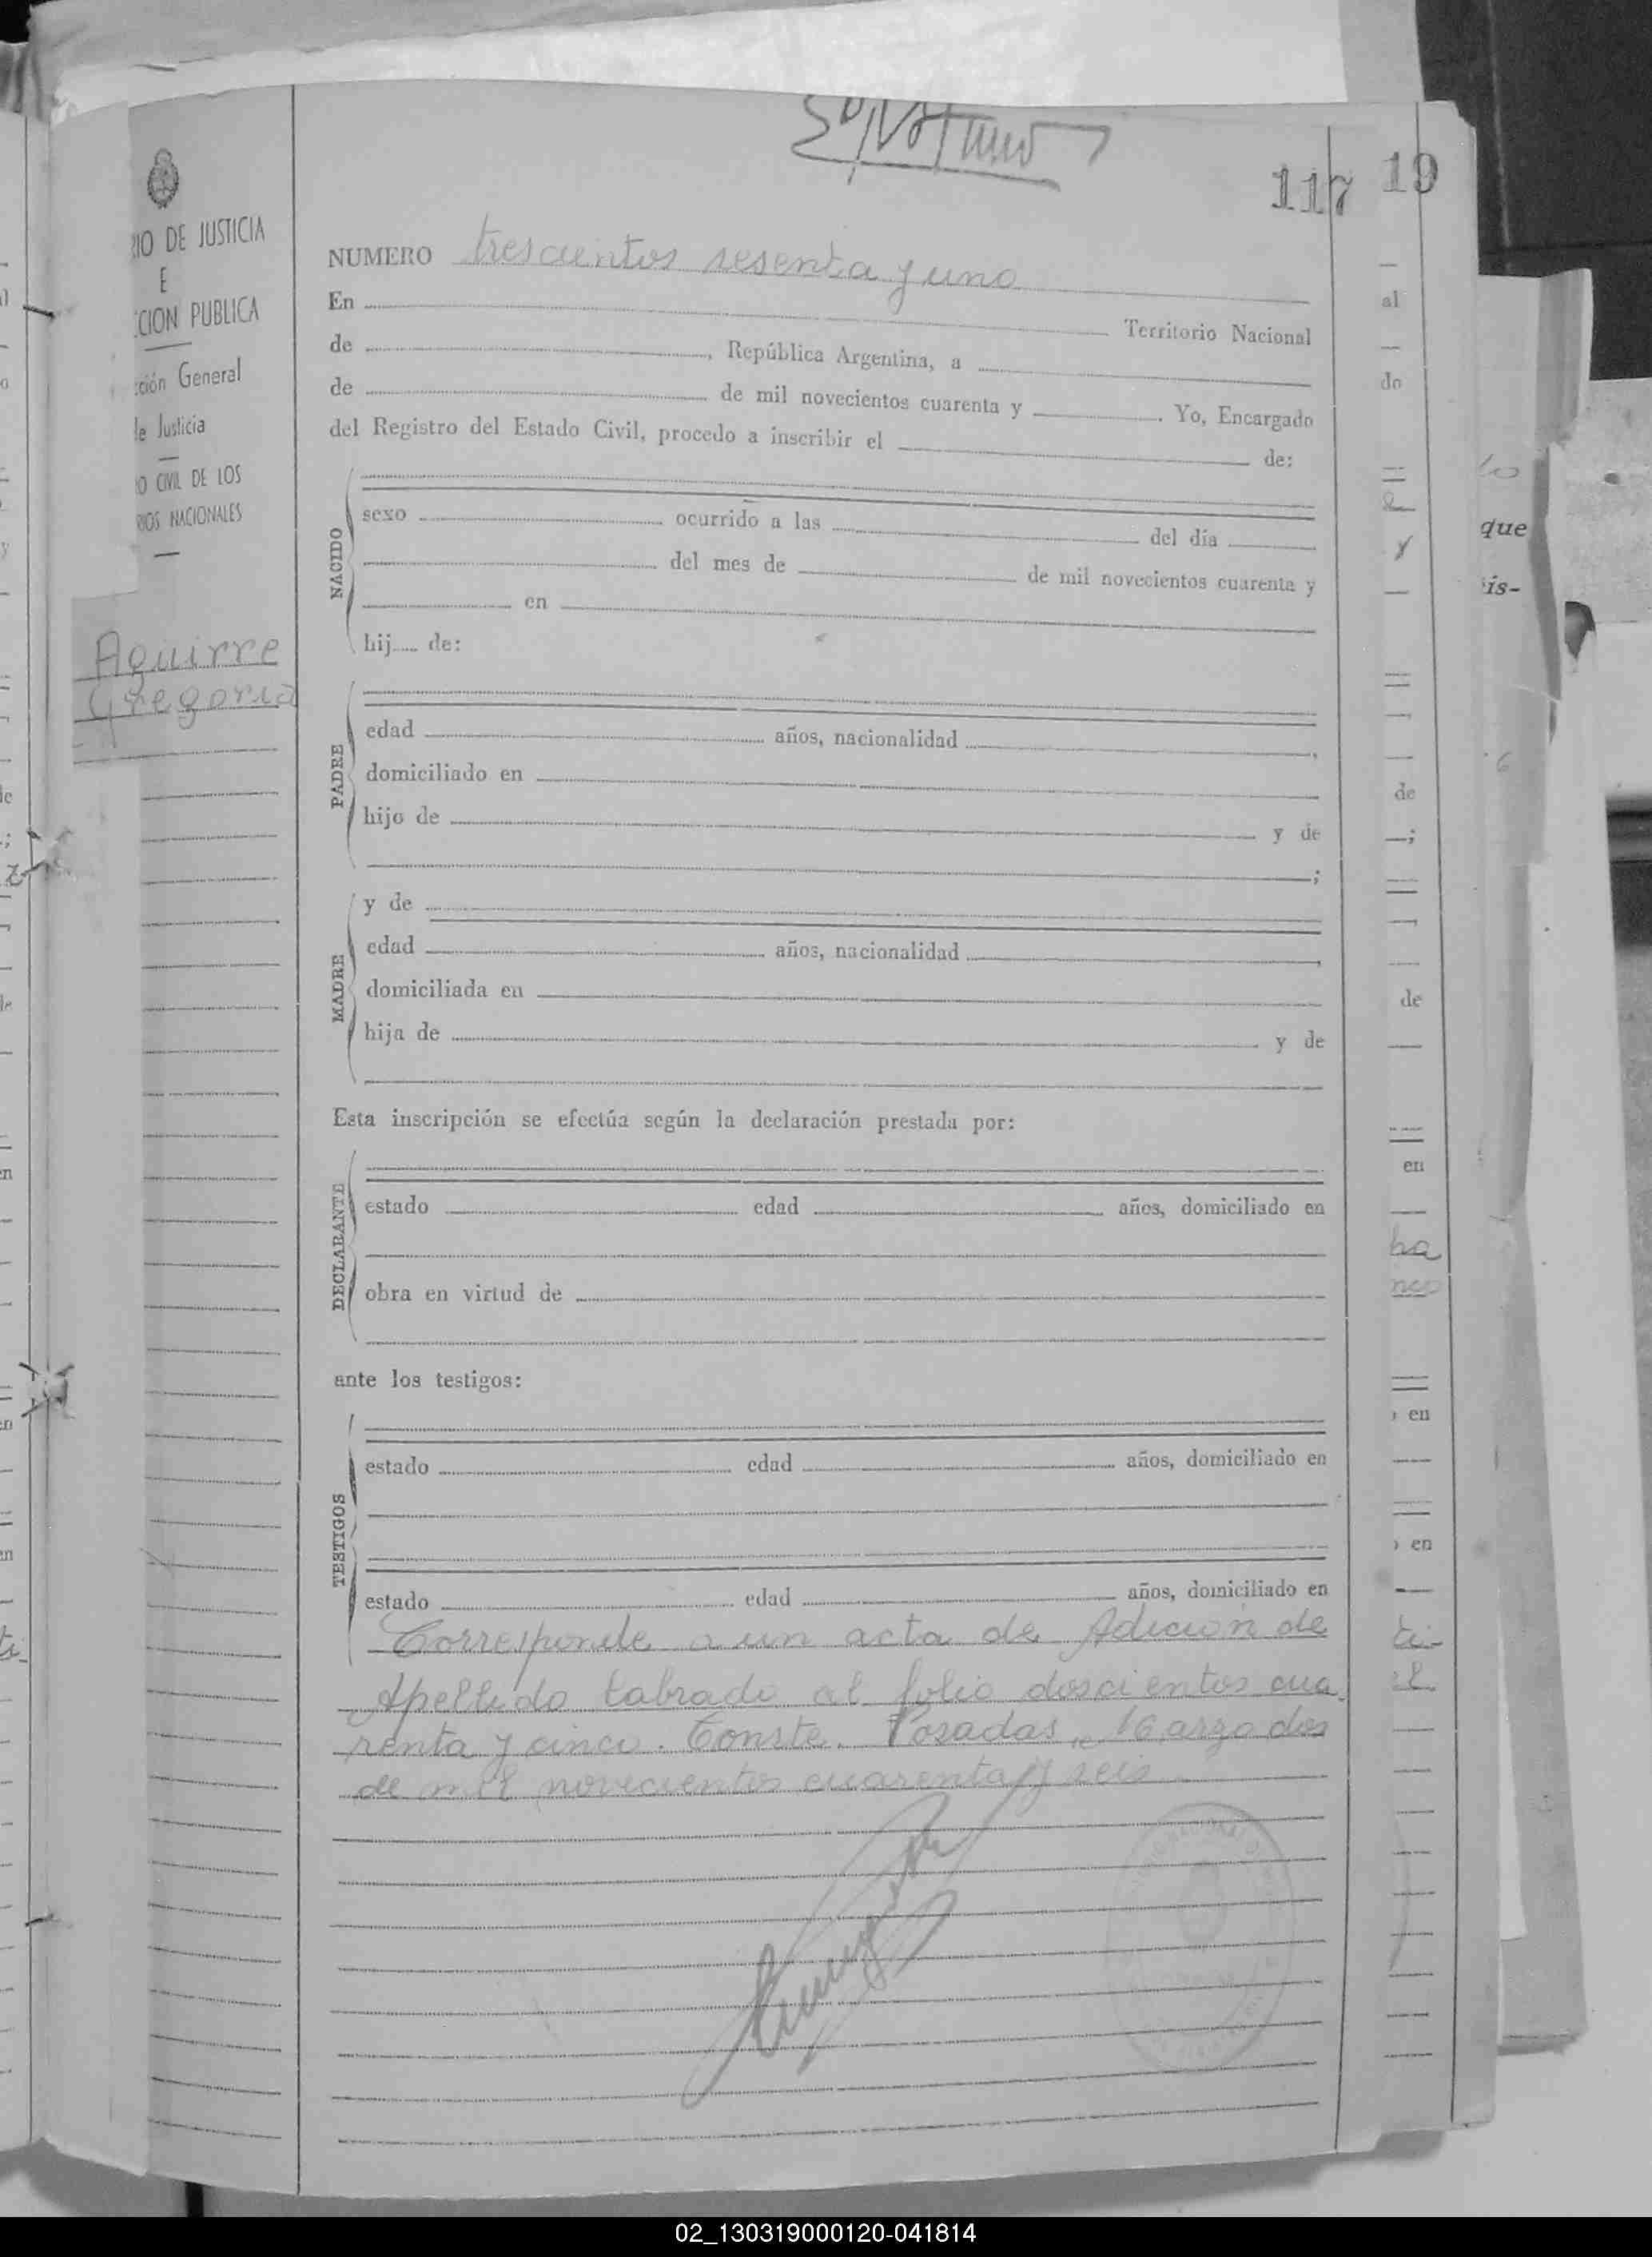 117 19
RIO DE JUSTICIA
E
CCION PUBLICA
cción General
de Justicia
O CIVIL DE LOS
RIOS NACIONALES
Aguirre
Gregoria
NUMERO trescientos sesenta y uno
En Territorio Nacional
de , República Argentina, a
de de mil novecientos cuarenta y . Yo, Encargado
del Registro del Estado Civil, procedo a inscribir el de:
NACIDO
sexo ocurrido a las del día
del mes de de mil novecientos cuarenta y
en
hij.... de:
PADRE
edad años, nacionalidad ,
domiciliado en
hijo de y de
;
MADRE
y de
edad años, nacionalidad ,
domiciliada en
hija de y de
Esta inscripción se efectúa según la declaración prestada por:
DECLARANTE
estado edad años, domiciliado en
obra en virtud de
ante los testigos:
TESTIGOS
estado edad años, domiciliado en
estado edad años, domiciliado en
Corresponde a un acta de Adición de
Apellido labrado al folio doscientos cua
renta y cinco. Conste. Posadas, Marzo dos
de mil novecientos cuarenta y seis
al
do
que
is-
de
de
en
ha
en
en
02_130319000120-041814